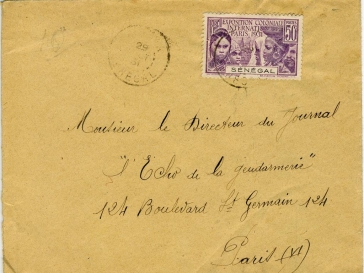 29
31
SÉNÉGAL
EXPOSITION COLONIALE
INTERNATLE
PARIS 1931
50
SÉNÉGAL
Monsieur le Directeur du Journal
"l'Echo de la gendarmerie"
124 Boulevard St Germain 124
Paris (VI)